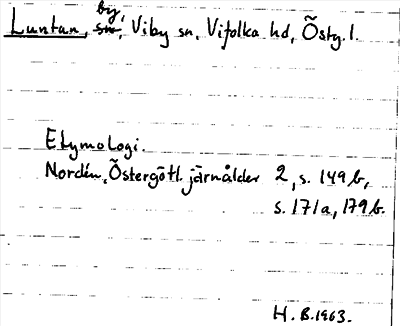 Luntun, by, Viby sn, Vifolka hd, Östg. l.
Etymologi.
Nordén, Östergötl. järnålder 2, s. 149 b,
s. 171 a, 179 b.
H. B. 1963.